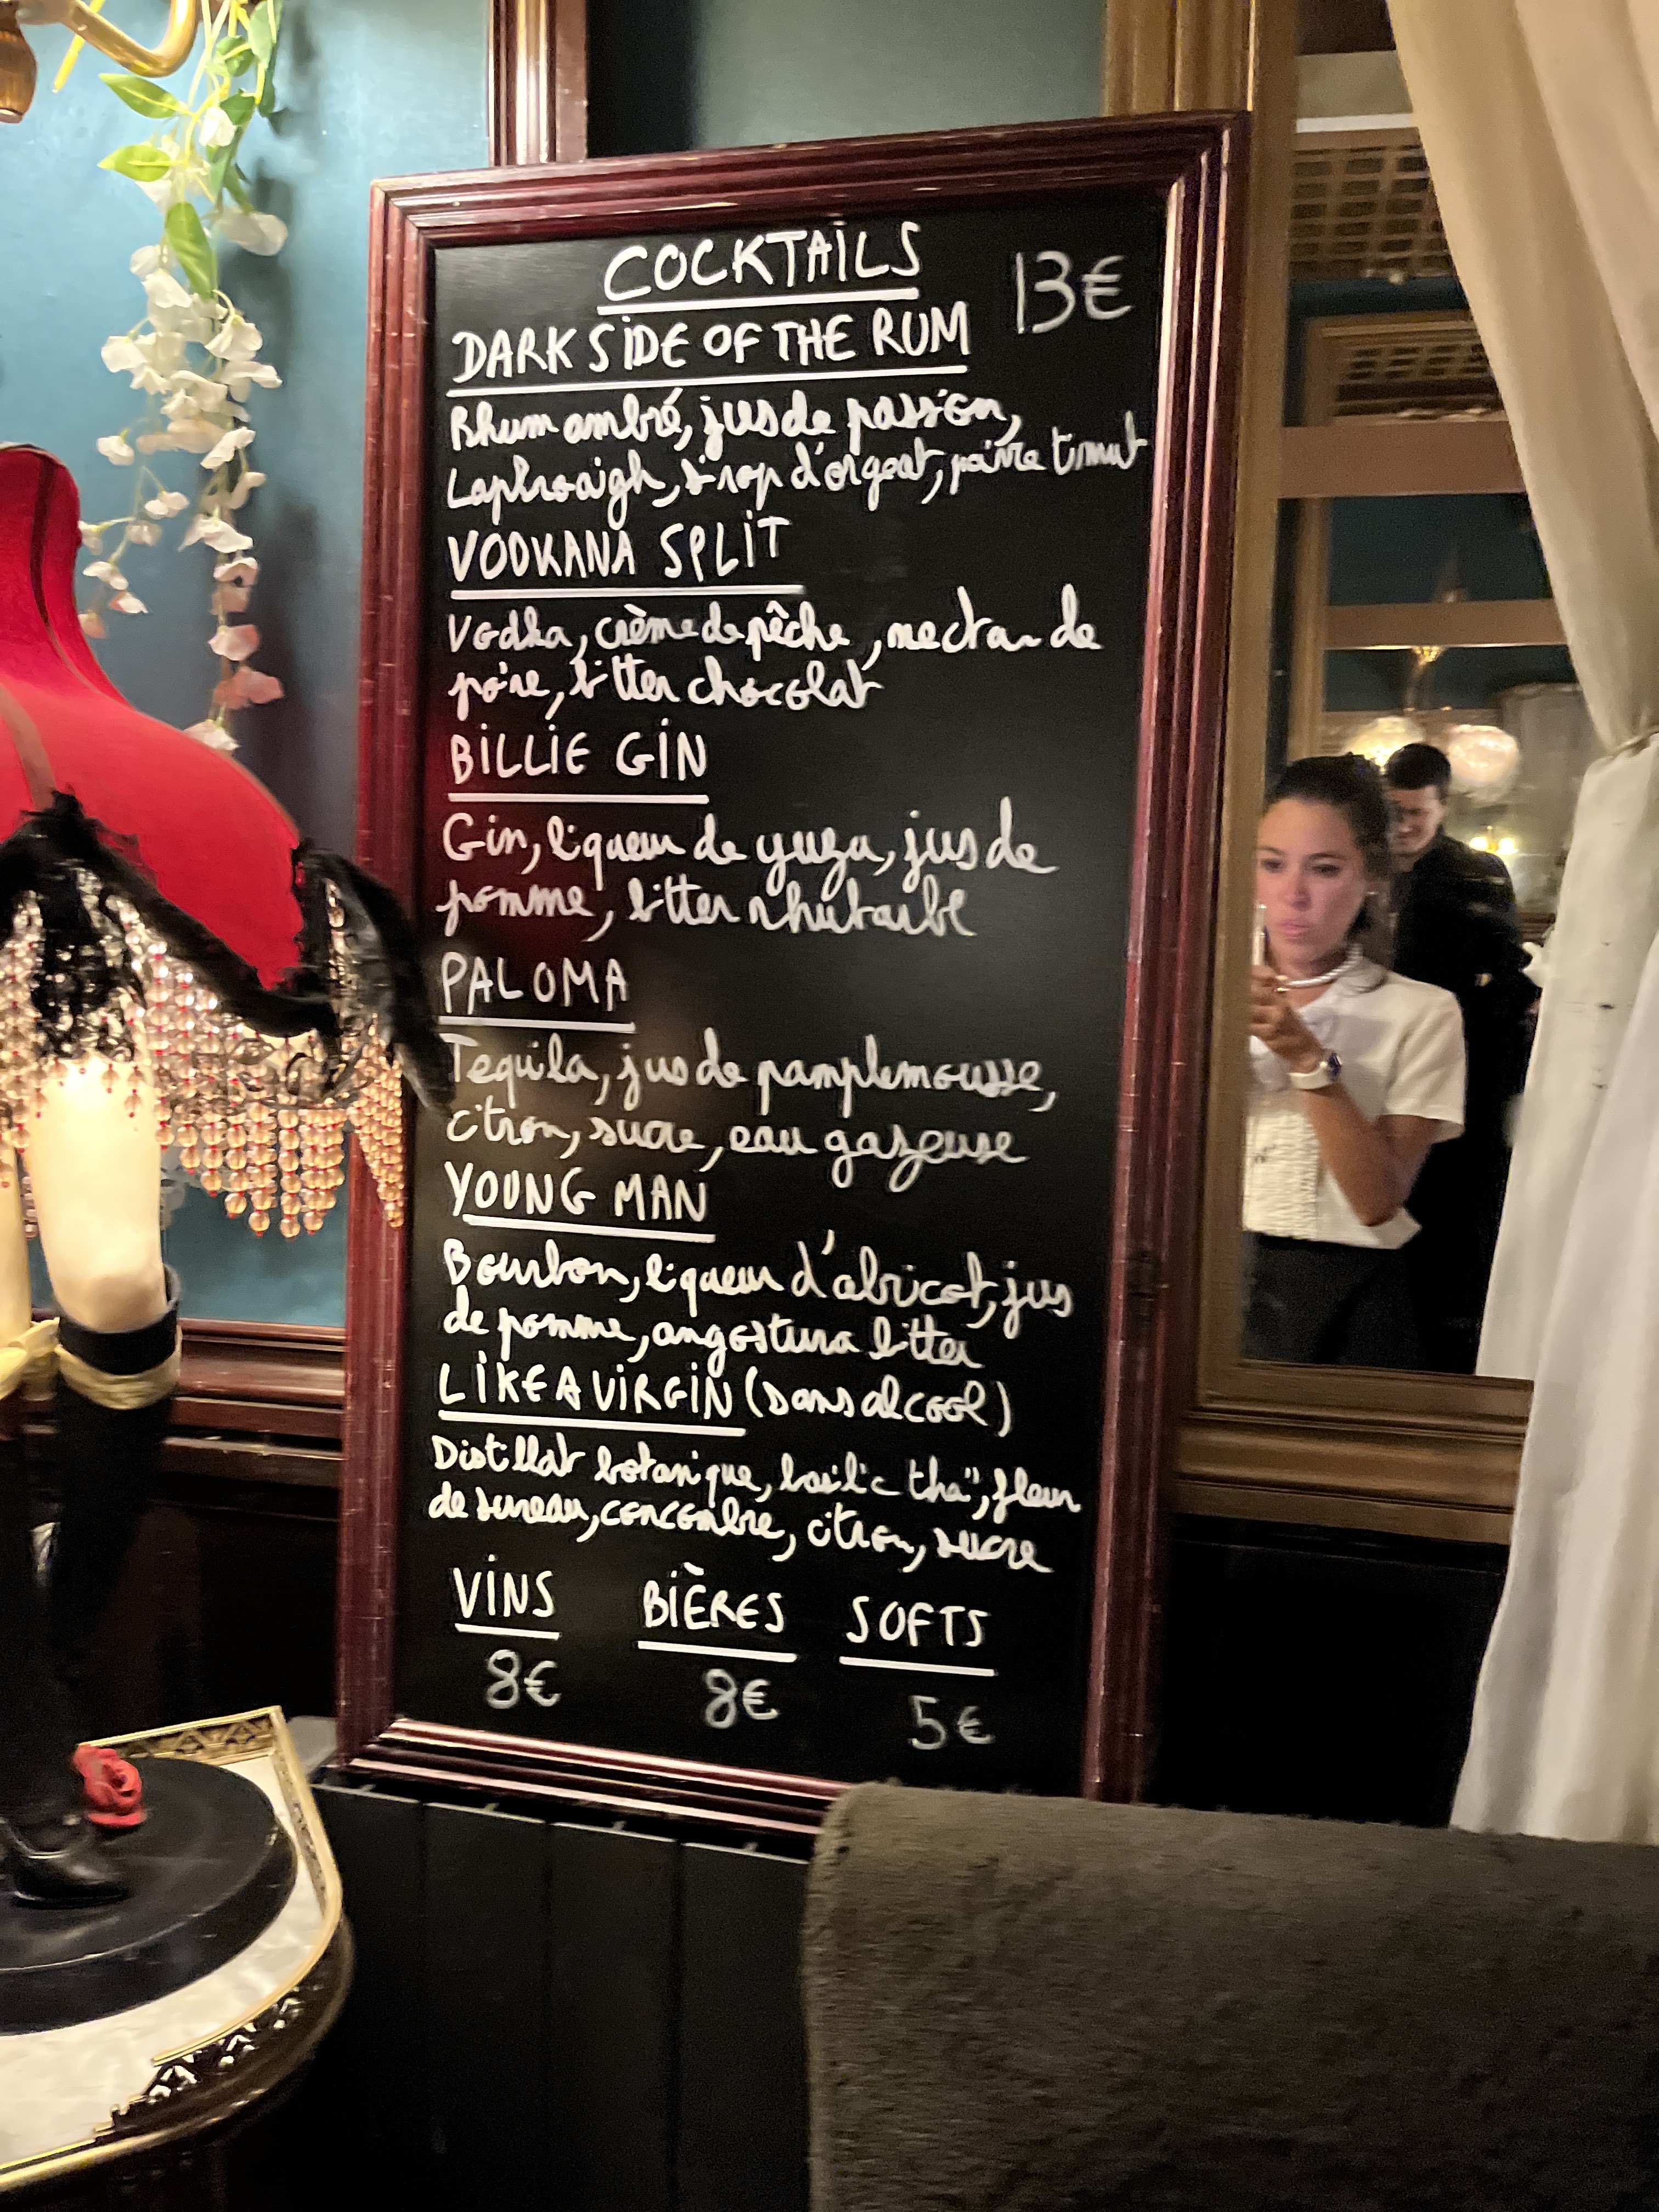 COCKTAILS 13€
DARK SIDE OF THE RUM
Rhum ambré, jus de passion,
Laphroaigh, sirop d'orgeat, poivre timut
VODKANA SPLIT
Vodka, crème de pêche, nectar de
poire, bitter chocolat
BILLIE GIN
Gin, liqueur de yuzu, jus de
pomme, bitter rhubarbe
PALOMA
Tequila, jus de pamplemousse,
citron, sucre, eau gazeuse
YOUNG MAN
Bourbon, liqueur d'abricot, jus
de pomme, angostura bitter
LIKE A VIRGIN (sans alcool)
Distillat botanique, basilic thaï, fleur
de sureau, concombre, citron, sucre
VINS BIÈRES SOFTS
8€ 8€ 5€